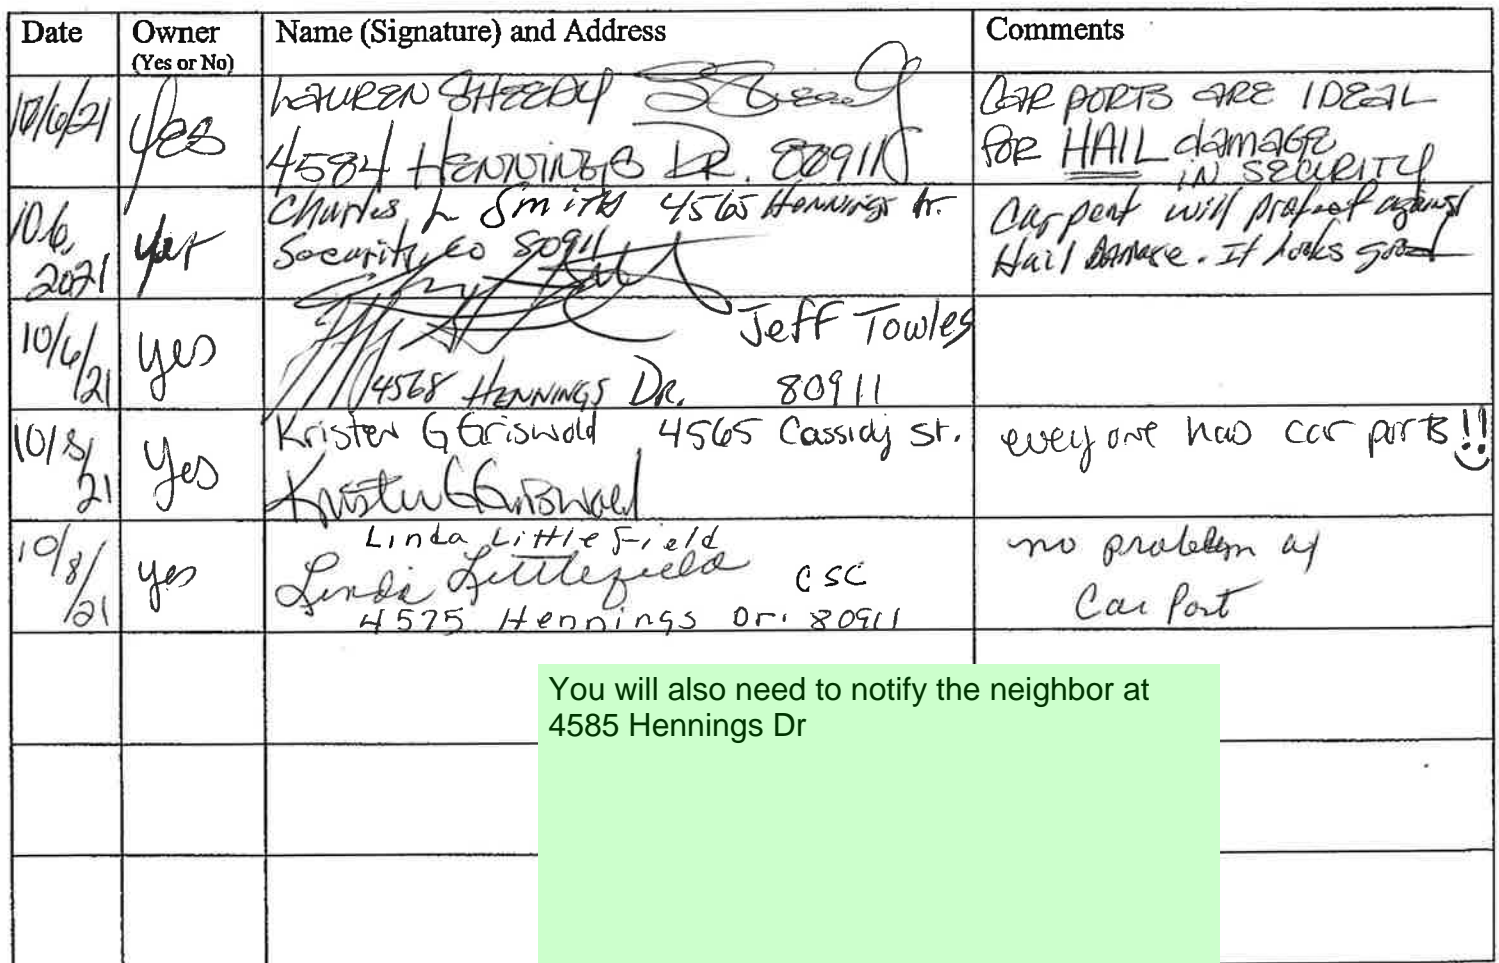 Date Owner Name (Signature) and Address Comments
(Yes or No)
10/6/21 yes LAUREN SHEEDY
4584 HENNINGS DR. 80911
CAR PORTS ARE IDEAL
FOR HAIL damAGE
IN SECURITY
10.6, 2021 yes Charles L Smith 4565 Hennings Dr.
Security, co 80911
Carport will protect against
Hail Damage. It looks good
10/6/21 yes Jeff Towles
4568 HENNINGS DR. 80911
10/8/21 Yes Kristen G Griswold 4565 Cassidy St.
Kristen G Griswold
everyone has car ports!!
10/8/21 yes Linda Littlefield
Linda Littlefield CSC
4575 Hennings Dr. 80911
no problem w/
Car Port
You will also need to notify the neighbor at
4585 Hennings Dr